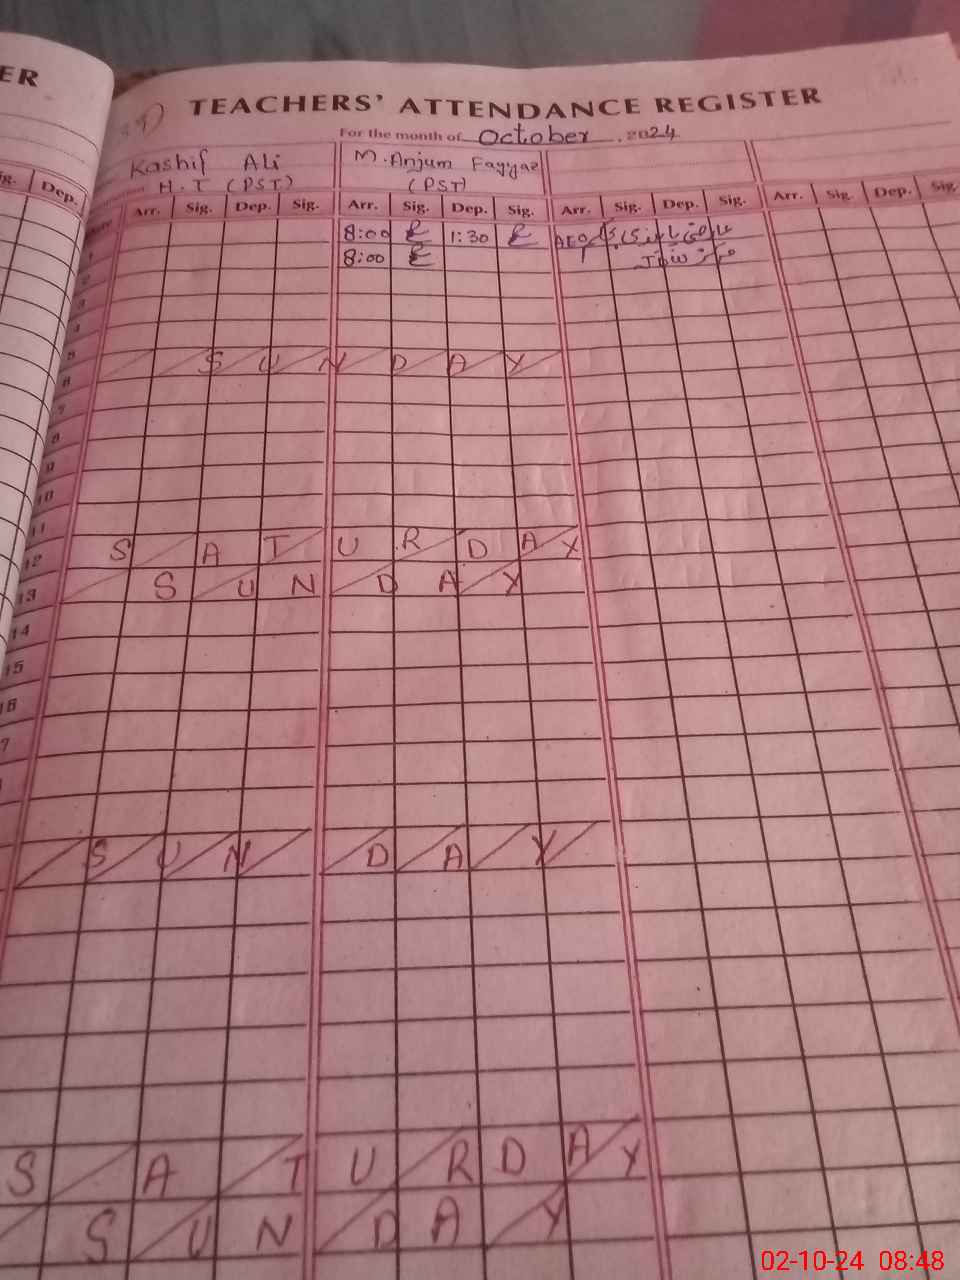 ER
TEACHERS' ATTENDANCE REGISTER
For the month of October 2024
Kashif Ali
M. Anjum Fayyaz
H.T (PST)
(PST)
ig. Dep.
Arr. Sig. Dep. Sig. Arr. Sig. Dep. Sig. Arr. Sig. Dep. Sig. Arr. Sig. Dep. Sig.
8:00 1:30 AEO
1 8:00
2
3
4
5
6 SUNDAY
7
8
9
10
11
12 SATURDAY
13 SUNDAY
14
15
16
7
SUNDAY
SATURDAY
SUNDAY
02-10-24 08:48